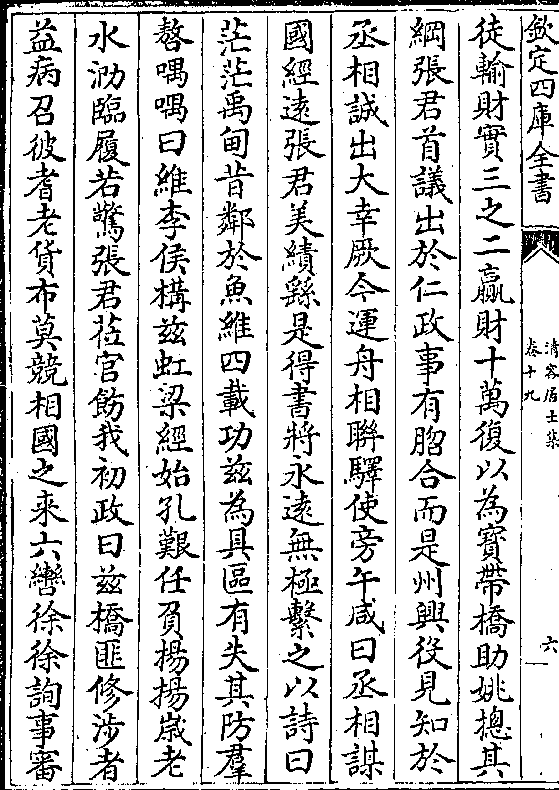 欽定四庫全書
清容居士集
卷十九
六
徒輸財實三之二贏財十萬復以為寳帶橋助姚摠其
綱張君首議出於仁政事有脗合而是州興役見知於
丞相誠出大幸厥今運舟相聯驛使旁午咸曰丞相謀
國經逺張君美績繇是得書將永逺無極繫之以詩曰
茫茫禹甸昔鄰於魚維四載功兹為具區有失其防羣
嗸喁喁曰維李侯構兹虹梁經始孔艱任負揚揚嵗老
水泐臨履若驚張君莅官飭我初政曰兹橋匪修涉者
益病召彼耆老貨布莫競相國之來六轡徐徐詢事審